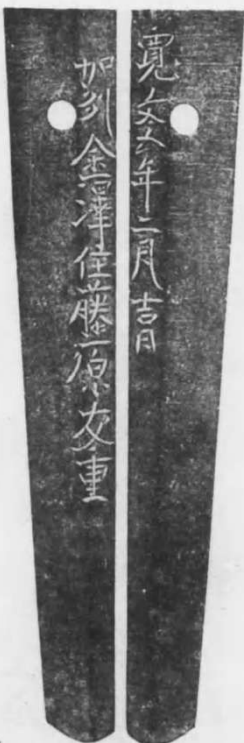 寛文六年二月吉日
加州金澤住藤原友重